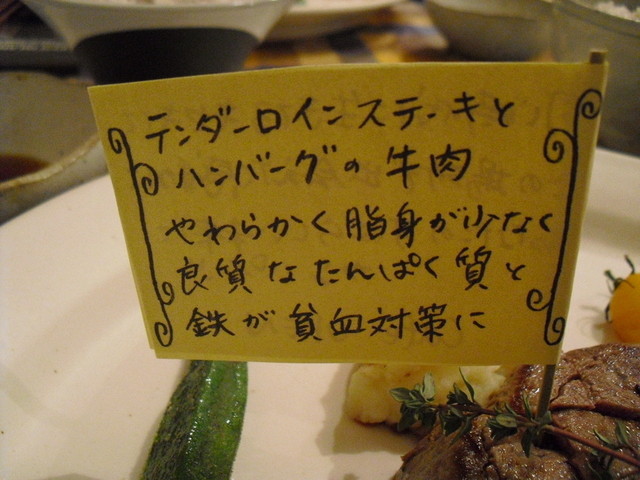 テンダーロインステーキと
ハンバーグの牛肉
やわらかく脂身が少なく
良質なたんぱく質と
鉄が貧血対策に